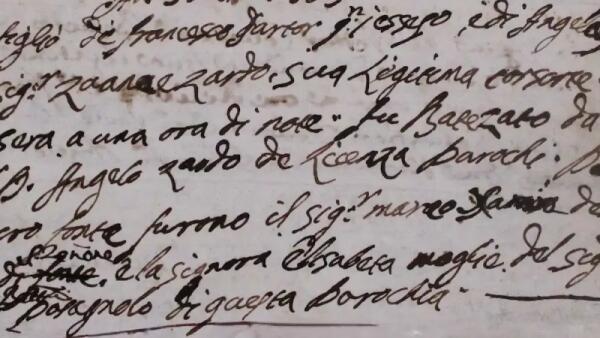 figlio de Francesco Sartor q.m Iseppo, e di Angela
sig.r Zuane Zardo, sua legitima consorte
sera a una ora di note" fu Batezato da
D. Angelo Zardo de Licenza Parochi.
cro fonte furono il sig.r marco da
e la signora Elisabeta moglie del sig
di questa Parochia"